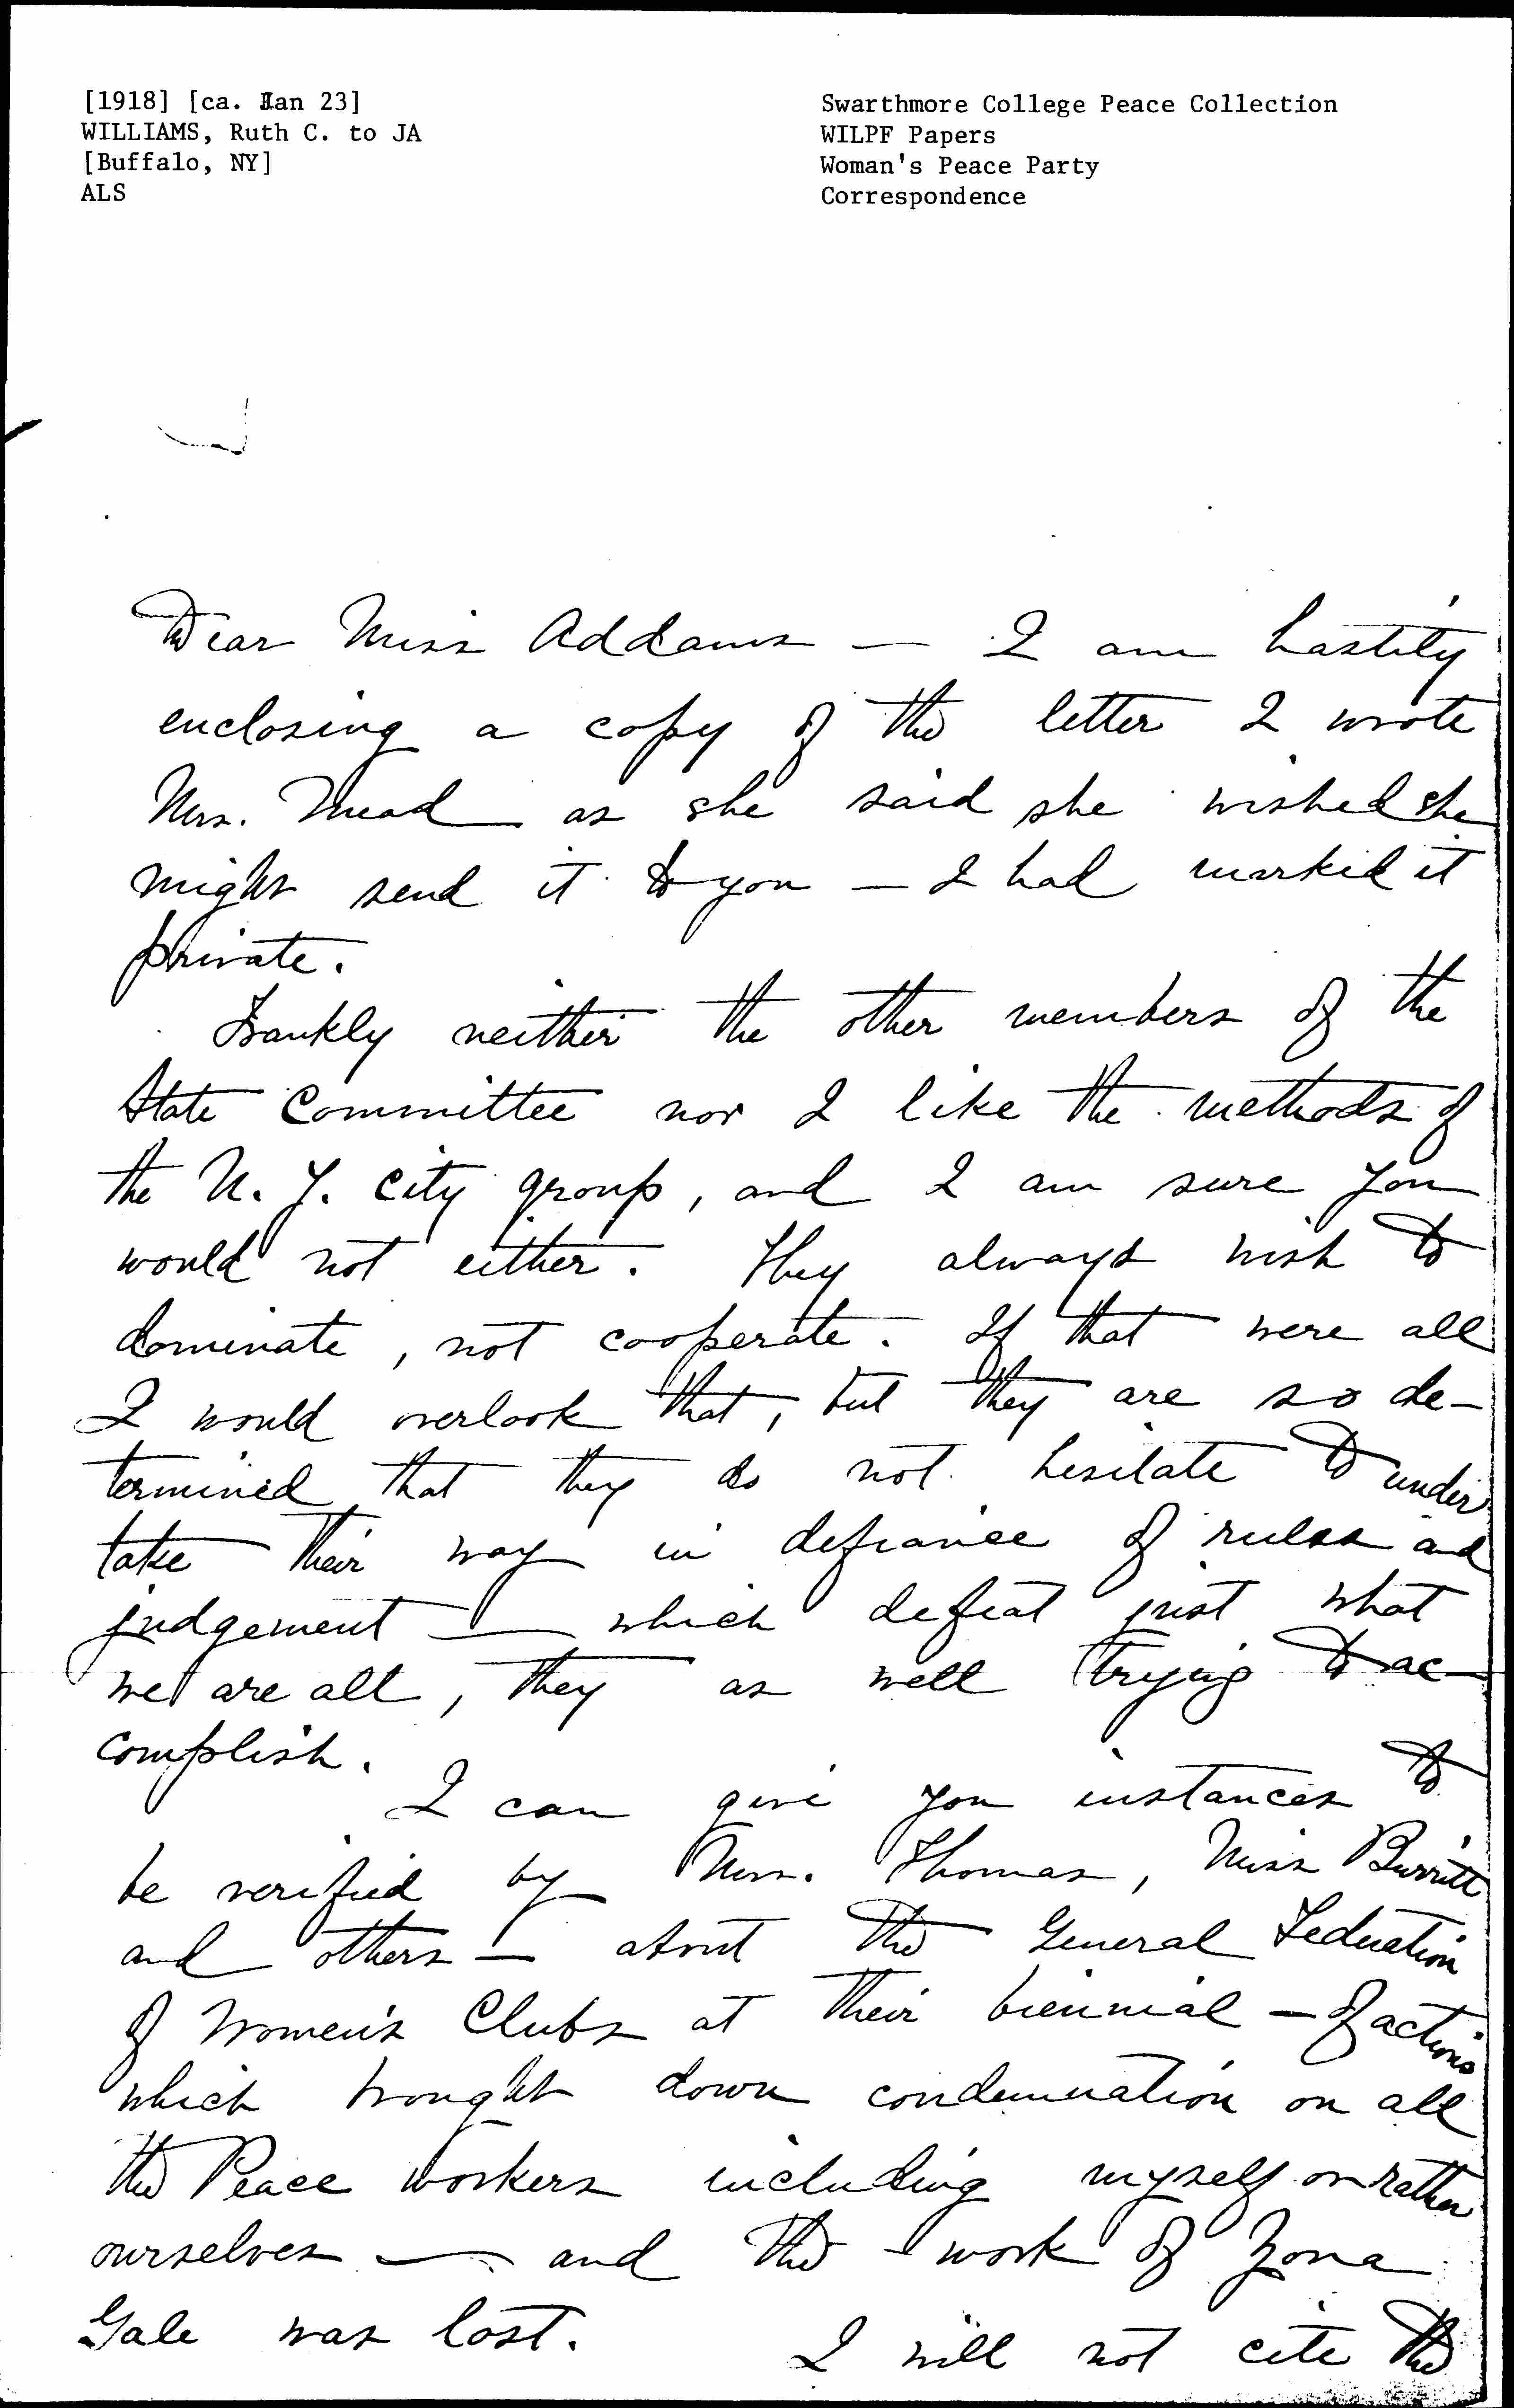 [1918] [ca. Jan 23]
WILLIAMS, Ruth C. to JA
[Buffalo, NY]
ALS
Swarthmore College Peace Collection
WILPF Papers
Woman's Peace Party
Correspondence
Dear Miss Addams — I am hastily
enclosing a copy of the letter I wrote
Mrs. Mead as she said she wished she
might send it to you — I had marked it
private.
Frankly neither the other members of the
State Committee nor I like the methods of
the N. Y. City group, and I am sure you
would not either. They always wish to
dominate, not cooperate. If that were all
I would overlook that, but they are so de-
termined that they do not hesitate to under
take their way in defiance of rules and
judgement — which defeat just what
we are all, they as well trying to ac-
complish.
I can give you instances to
be verified by Mrs. Thomas, Miss Burritt
and others — about the General Federation
of Women's Clubs at their biennial — of actions
which brought down condemnation on all
the Peace workers including myself or rather
ourselves — and the work of Zona
Gale was lost.
I will not cite the